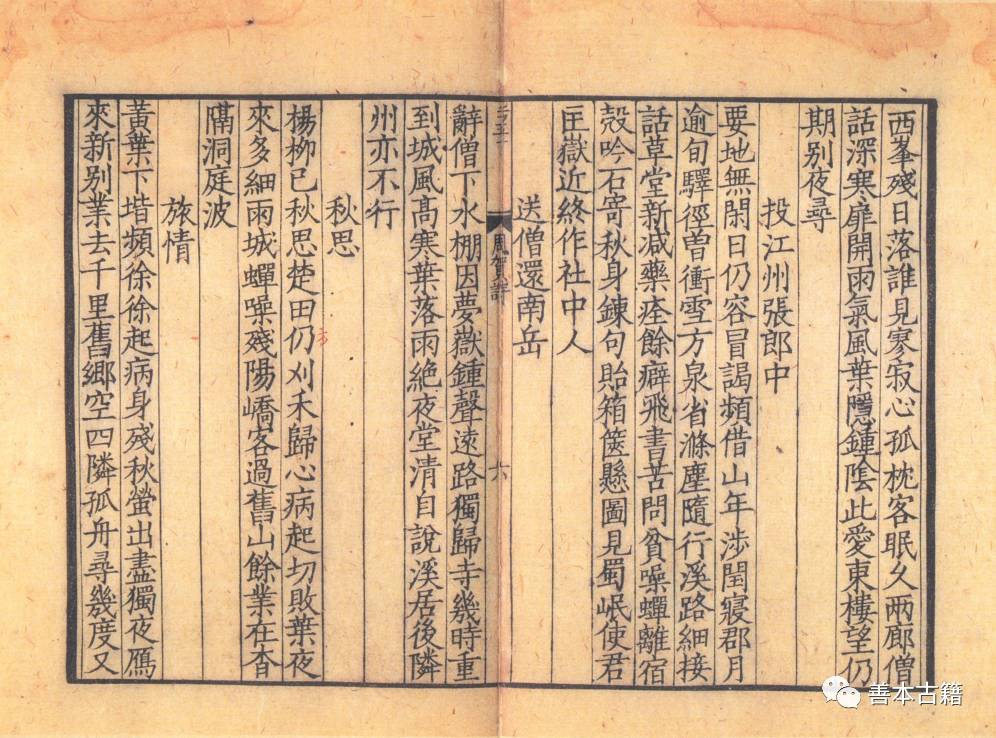 西峯殘日落誰見寥寂心孤枕客眠久兩廊僧
話深寒扉開雨氣風葉隱鍾陰此愛東樓望仍
期別夜尋
投江州張郎中
要地無閑日仍容冒謁頻借山年涉閏寢郡月
逾旬驛徑曽衝雪方泉省滌塵隨行溪路細接
話草堂新減藥痊餘癖飛書苦問貧噪蟬離宿
殼吟石寄秋身鍊句貽箱篋懸圖見蜀岷使君
匡嶽近終作社中人
送僧還南岳
周賀詩
六
辭僧下水棚因夢嶽鍾聲遠路獨歸寺幾時重
到城風髙寒葉落雨絶夜堂清自說溪居後隣
州亦不行
秋思
楊柳已秋思楚田仍刈禾歸心病起切敗葉夜
來多細雨城蟬噪殘陽嶠客過舊山餘業在杳
隔洞庭波
旅情
黃葉下堦頻徐徐起病身殘秋螢出盡獨夜鴈
來新别業去千里舊郷空四隣孤舟尋幾度又
善本古籍